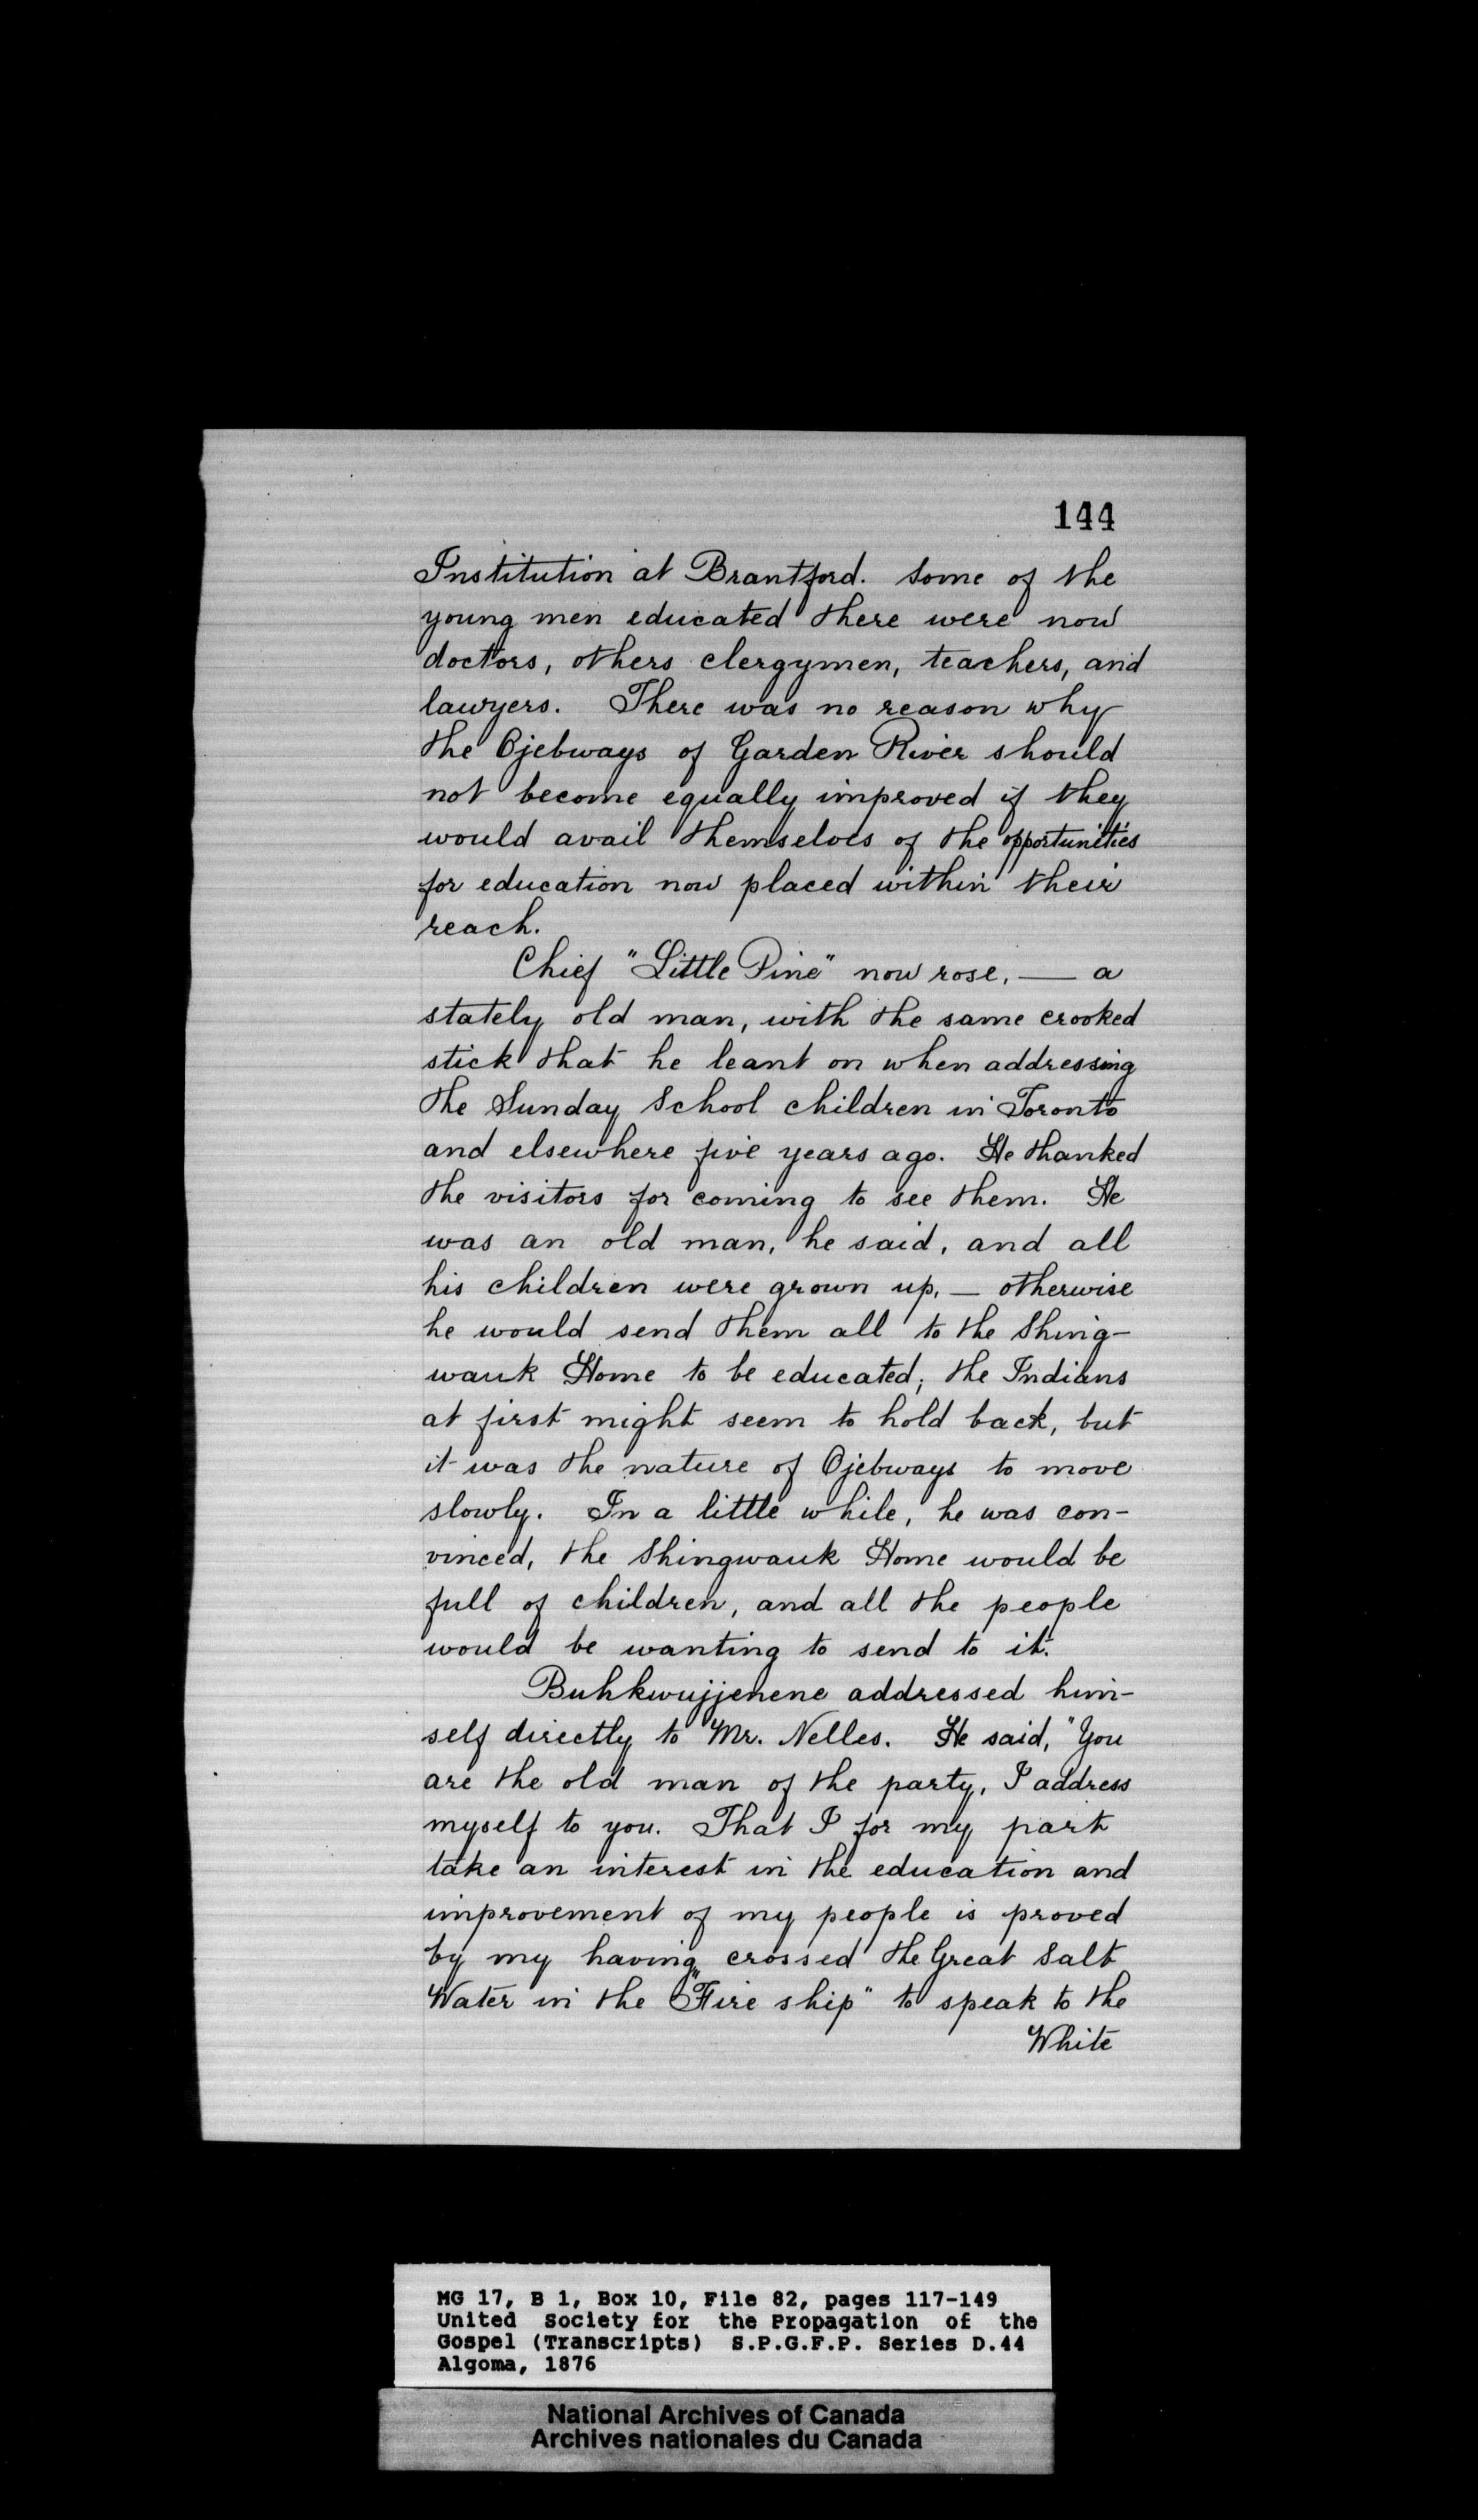 144
Institution at Brantford. Some of the
young men educated there were now
doctors, others clergymen, teachers, and
lawyers. There was no reason why
the Ojebways of Garden River should
not become equally improved if they
would avail themselves of the opportunities
for education now placed within their
reach.
Chief "Little Pine" now rose, — a
stately old man, with the same crooked
stick that he leant on when addressing
the Sunday School children in Toronto
and elsewhere five years ago. He thanked
the visitors for coming to see them. He
was an old man, he said, and all
his children were grown up, — otherwise
he would send them all to the Shing-
wauk Home to be educated; the Indians
at first might seem to hold back, but
it was the nature of Ojebways to move
slowly. In a little while, he was con-
vinced, the Shingwauk Home would be
full of children, and all the people
would be wanting to send to it.
Buhkwujjenene addressed him-
self directly to Mr. Nelles. He said, "You
are the old man of the party, I address
myself to you. That I for my part
take an interest in the education and
improvement of my people is proved
by my having crossed the Great Salt
Water in the "Fire ship" to speak to the
White
MG 17, B 1, Box 10, File 82, pages 117-149
United Society for the Propagation of the
Gospel (Transcripts) S.P.G.F.P. Series D.44
Algoma, 1876
National Archives of Canada
Archives nationales du Canada